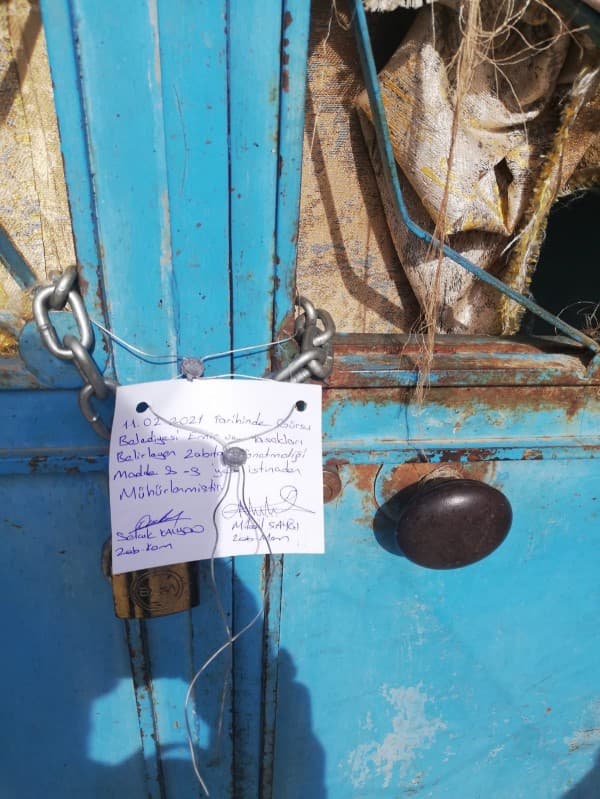 11.02.2021 Tarihinde Gürsu
Belediyesi Emir ve Yasakları
Belirleyen Zabıta Yönetmeliği
Madde 8 iye istinaden
Mühürlenmiştir
Selçuk
Zab. Kom
SAYGI
Zab. Mem